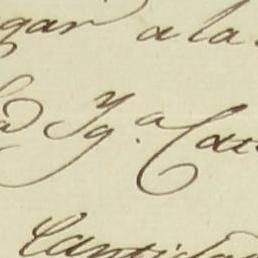 gar a la
Yg.ª Cat
Cantidad